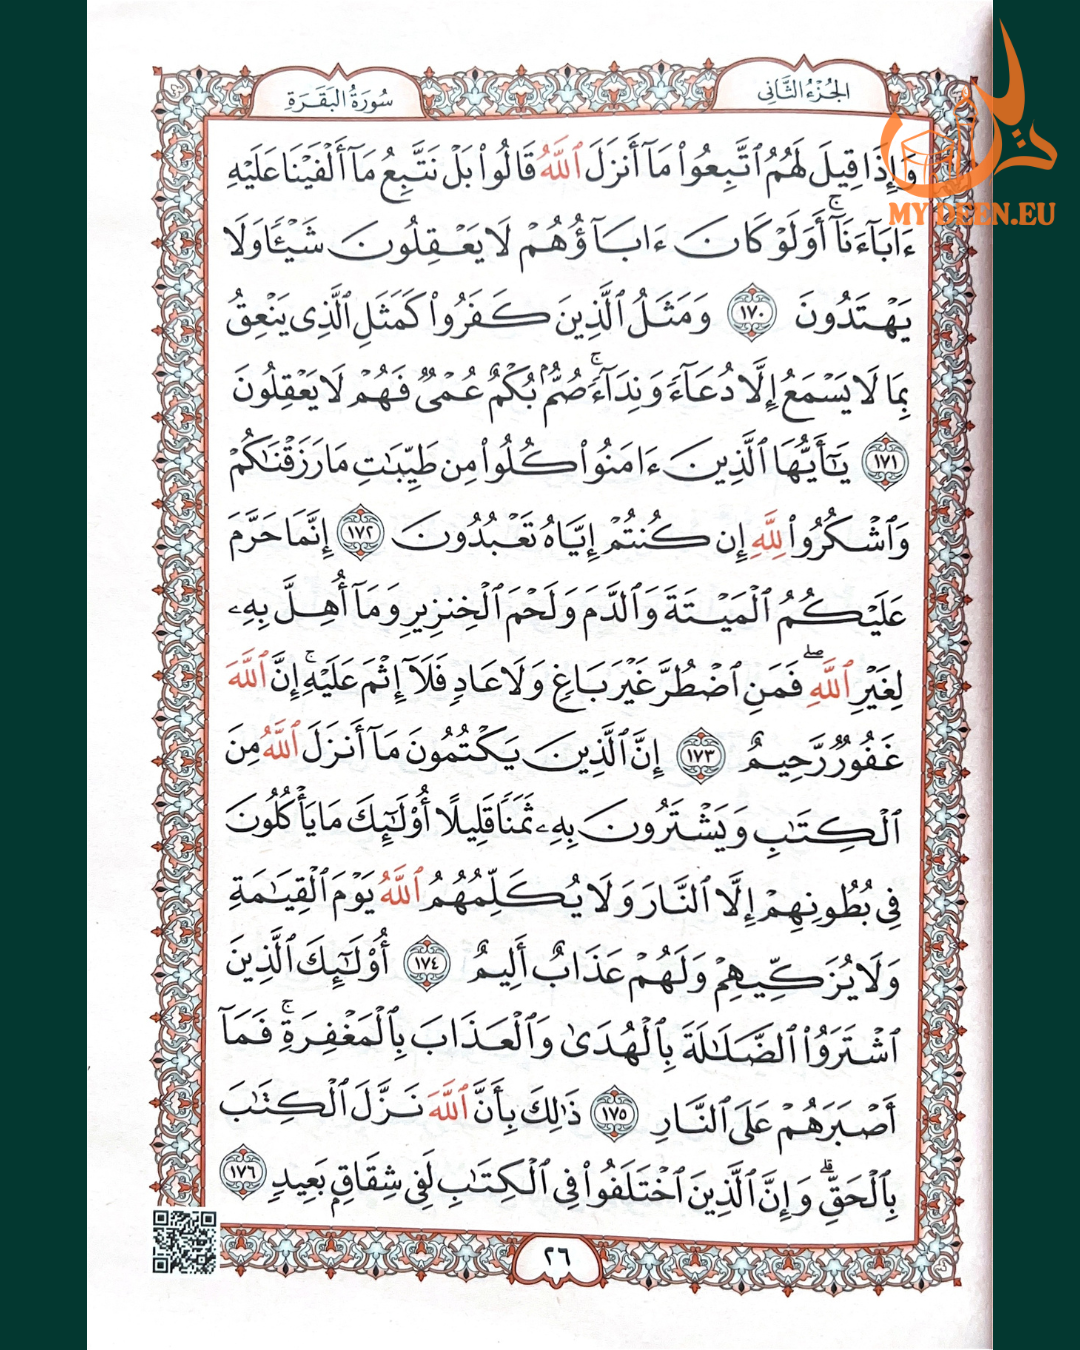 الجُزْءُ الثَّانِي
سُورَةُ البَقَرَةِ
MY DEEN.EU
وَإِذَا قِيلَ لَهُمُ ٱتَّبِعُوا۟ مَآ أَنزَلَ ٱللَّهُ قَالُوا۟ بَلْ نَتَّبِعُ مَآ أَلْفَيْنَا عَلَيْهِ
ءَابَآءَنَآ ۚ أَوَلَوْ كَانَ ءَابَآؤُهُمْ لَا يَعْقِلُونَ شَيْـًٔا وَلَا
يَهْتَدُونَ ١٧٠ وَمَثَلُ ٱلَّذِينَ كَفَرُوا۟ كَمَثَلِ ٱلَّذِى يَنْعِقُ
بِمَا لَا يَسْمَعُ إِلَّا دُعَآءً وَنِدَآءً ۚ صُمٌّۢ بُكْمٌ عُمْىٌ فَهُمْ لَا يَعْقِلُونَ
١٧١ يَـٰٓأَيُّهَا ٱلَّذِينَ ءَامَنُوا۟ كُلُوا۟ مِن طَيِّبَـٰتِ مَا رَزَقْنَـٰكُمْ
وَٱشْكُرُوا۟ لِلَّهِ إِن كُنتُمْ إِيَّاهُ تَعْبُدُونَ ١٧٢ إِنَّمَا حَرَّمَ
عَلَيْكُمُ ٱلْمَيْتَةَ وَٱلدَّمَ وَلَحْمَ ٱلْخِنزِيرِ وَمَآ أُهِلَّ بِهِۦ
لِغَيْرِ ٱللَّهِ ۖ فَمَنِ ٱضْطُرَّ غَيْرَ بَاغٍ وَلَا عَادٍ فَلَآ إِثْمَ عَلَيْهِ ۚ إِنَّ ٱللَّهَ
غَفُورٌ رَّحِيمٌ ١٧٣ إِنَّ ٱلَّذِينَ يَكْتُمُونَ مَآ أَنزَلَ ٱللَّهُ مِنَ
ٱلْكِتَـٰبِ وَيَشْتَرُونَ بِهِۦ ثَمَنًا قَلِيلًا أُو۟لَـٰٓئِكَ مَا يَأْكُلُونَ
فِى بُطُونِهِمْ إِلَّا ٱلنَّارَ وَلَا يُكَلِّمُهُمُ ٱللَّهُ يَوْمَ ٱلْقِيَـٰمَةِ
وَلَا يُزَكِّيهِمْ وَلَهُمْ عَذَابٌ أَلِيمٌ ١٧٤ أُو۟لَـٰٓئِكَ ٱلَّذِينَ
ٱشْتَرَوُا۟ ٱلضَّلَـٰلَةَ بِٱلْهُدَىٰ وَٱلْعَذَابَ بِٱلْمَغْفِرَةِ ۚ فَمَآ
أَصْبَرَهُمْ عَلَى ٱلنَّارِ ١٧٥ ذَٰلِكَ بِأَنَّ ٱللَّهَ نَزَّلَ ٱلْكِتَـٰبَ
بِٱلْحَقِّ ۗ وَإِنَّ ٱلَّذِينَ ٱخْتَلَفُوا۟ فِى ٱلْكِتَـٰبِ لَفِى شِقَاقٍۭ بَعِيدٍ ١٧٦
٢٦